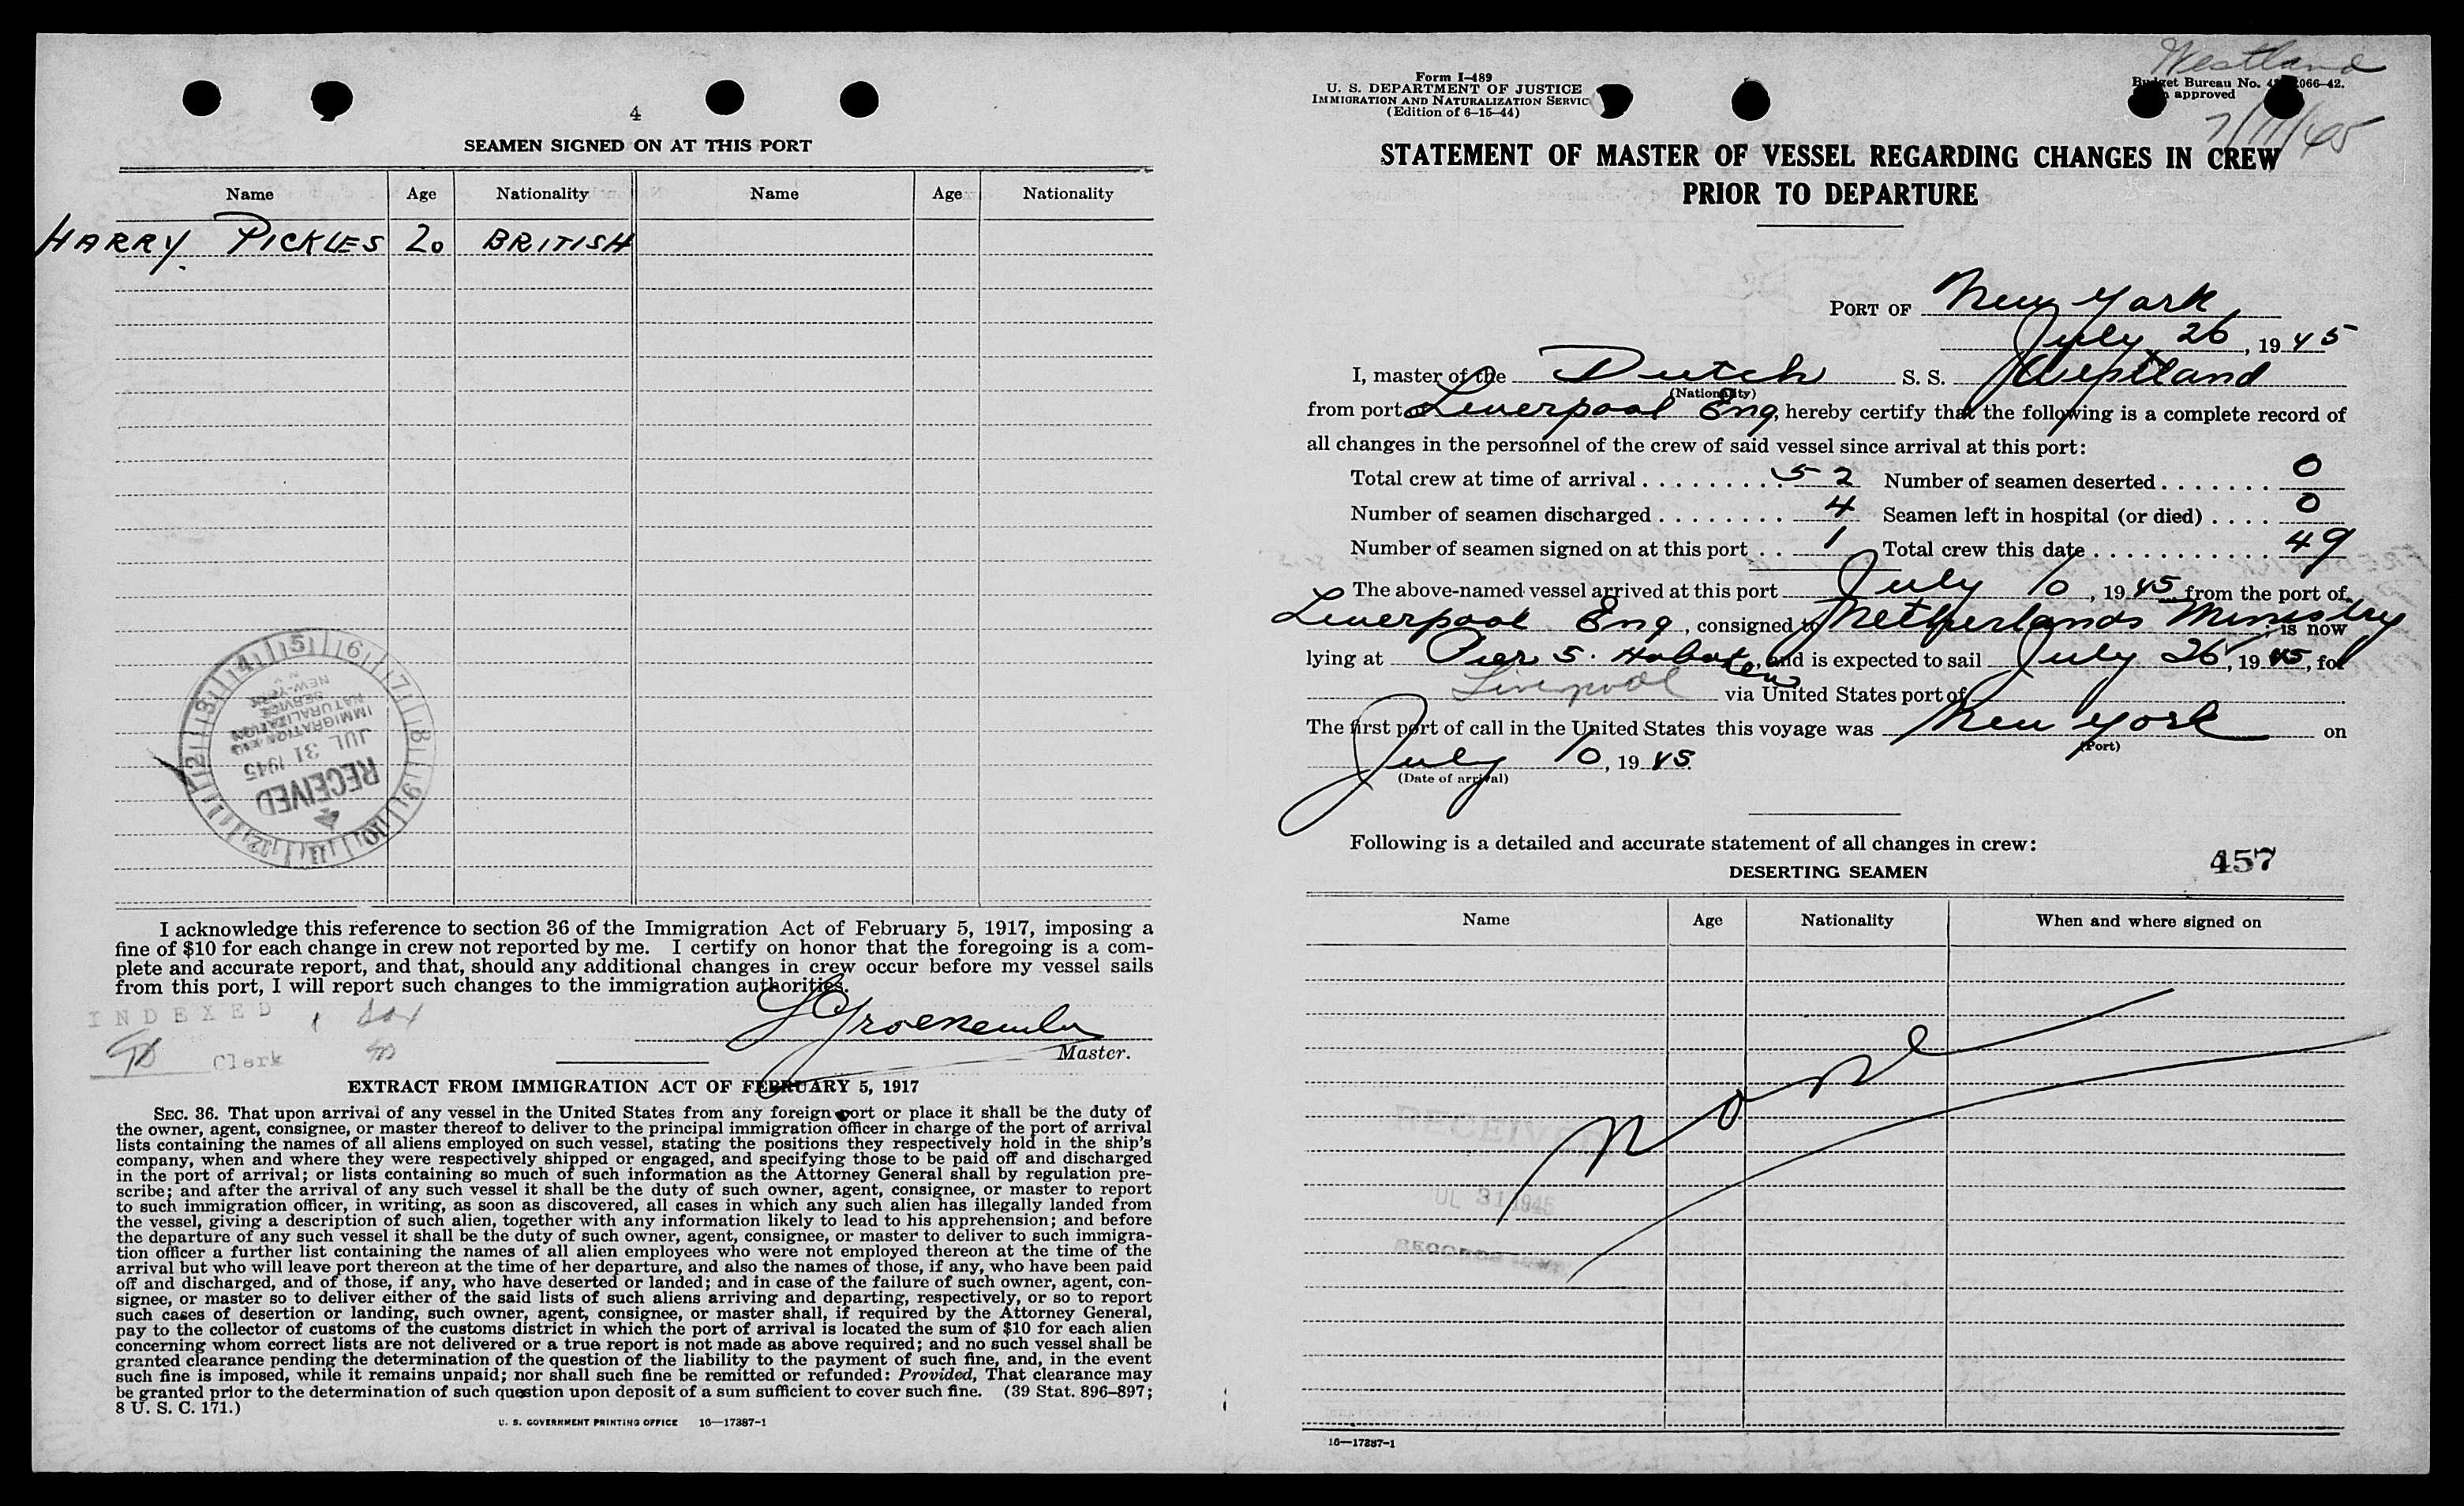 4
SEAMEN SIGNED ON AT THIS PORT
Name Age Nationality Name Age Nationality
HARRY PICKLES 20 BRITISH
5 6 7 8 9 10 11 12 1 2 3 4
RECEIVED
JUL 31 1945
IMMIGRATION AND
NATURALIZATION
SERVICE
NEW-YORK
I acknowledge this reference to section 36 of the Immigration Act of February 5, 1917, imposing a
fine of $10 for each change in crew not reported by me. I certify on honor that the foregoing is a com-
plete and accurate report, and that, should any additional changes in crew occur before my vessel sails
from this port, I will report such changes to the immigration authorities.
INDEXED
Clerk
Master.
EXTRACT FROM IMMIGRATION ACT OF FEBRUARY 5, 1917
SEC. 36. That upon arrival of any vessel in the United States from any foreign port or place it shall be the duty of
the owner, agent, consignee, or master thereof to deliver to the principal immigration officer in charge of the port of arrival
lists containing the names of all aliens employed on such vessel, stating the positions they respectively hold in the ship's
company, when and where they were respectively shipped or engaged, and specifying those to be paid off and discharged
in the port of arrival; or lists containing so much of such information as the Attorney General shall by regulation pre-
scribe; and after the arrival of any such vessel it shall be the duty of such owner, agent, consignee, or master to report
to such immigration officer, in writing, as soon as discovered, all cases in which any such alien has illegally landed from
the vessel, giving a description of such alien, together with any information likely to lead to his apprehension; and before
the departure of any such vessel it shall be the duty of such owner, agent, consignee, or master to deliver to such immigra-
tion officer a further list containing the names of all alien employees who were not employed thereon at the time of the
arrival but who will leave port thereon at the time of her departure, and also the names of those, if any, who have been paid
off and discharged, and of those, if any, who have deserted or landed; and in case of the failure of such owner, agent, con-
signee, or master so to deliver either of the said lists of such aliens arriving and departing, respectively, or so to report
such cases of desertion or landing, such owner, agent, consignee, or master shall, if required by the Attorney General,
pay to the collector of customs of the customs district in which the port of arrival is located the sum of $10 for each alien
concerning whom correct lists are not delivered or a true report is not made as above required; and no such vessel shall be
granted clearance pending the determination of the question of the liability to the payment of such fine, and, in the event
such fine is imposed, while it remains unpaid; nor shall such fine be remitted or refunded: Provided, That clearance may
be granted prior to the determination of such question upon deposit of a sum sufficient to cover such fine. (39 Stat. 896–897;
8 U. S. C. 171.)
U. S. GOVERNMENT PRINTING OFFICE 16—17387-1
Form I-489
U. S. DEPARTMENT OF JUSTICE
IMMIGRATION AND NATURALIZATION SERVIC
(Edition of 6-15-44)
Westland
Budget Bureau No. 066-42.
approved
7/11/45
STATEMENT OF MASTER OF VESSEL REGARDING CHANGES IN CREW
PRIOR TO DEPARTURE
PORT OF New York
July 26, 1945
I, master of the Dutch S. S. Westland
(Nationality)
from port of Liverpool Eng, hereby certify that the following is a complete record of
all changes in the personnel of the crew of said vessel since arrival at this port:
Total crew at time of arrival 52 Number of seamen deserted 0
Number of seamen discharged 4 Seamen left in hospital (or died) 0
Number of seamen signed on at this port 1 Total crew this date 49
The above-named vessel arrived at this port July 10, 1945 from the port of
Liverpool Eng, consigned to Netherlands Ministry; is now
lying at Pier 5. Hoboken, and is expected to sail July 26, 1945, for
Liverpool via United States port of
The first port of call in the United States this voyage was New York on
(Port)
July 10, 1945.
(Date of arrival)
Following is a detailed and accurate statement of all changes in crew:
457
DESERTING SEAMEN
Name Age Nationality When and where signed on
none
RECEIVED
JUL 31 1945
RECORDS
16—17387-1